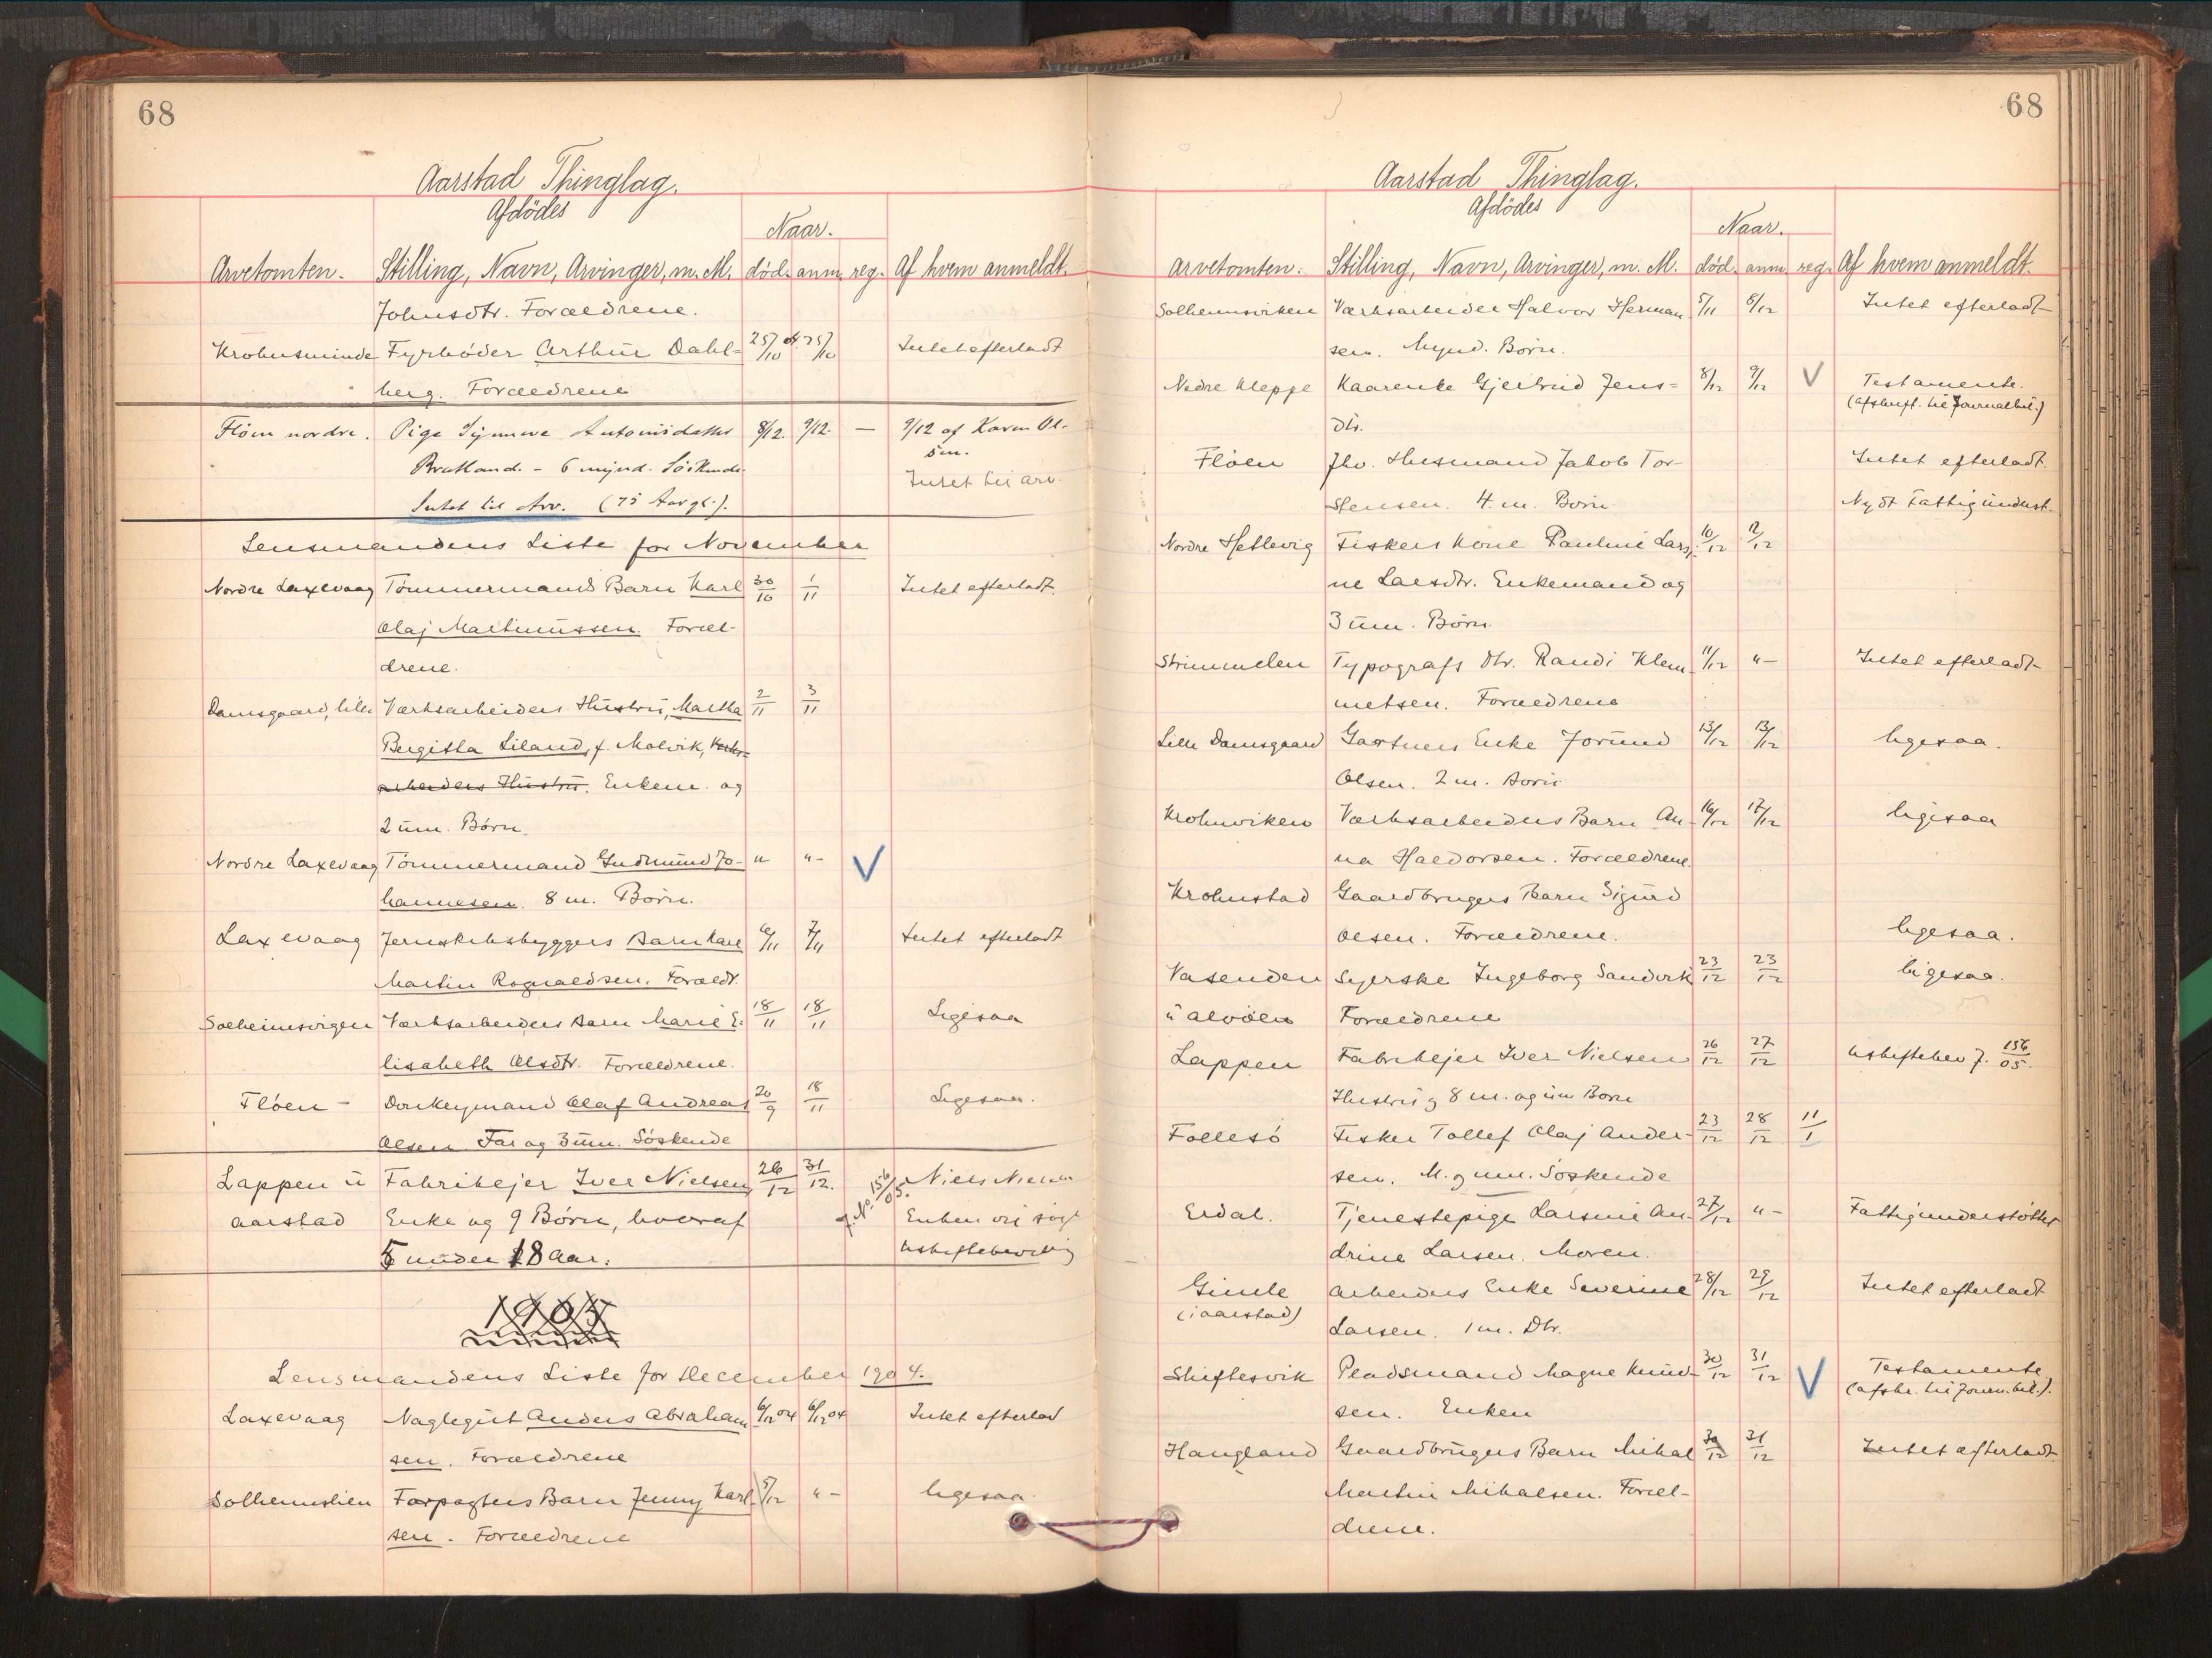 68
Aarstad Thinglag.
Afdödes
Naar.
Arvetomten. Stilling, Navn, Arvinger, m. M. död. anm. reg. Af hvem anmeldt.
Johnsdtr. Forældrene.
Krohnsminde Fyrbøder Arthur Dahl- 25/10 25/10 Intet efterladt
berg. Forældrene
Fløen nordre. Pige Synneve 8/12. 9/12. — 9/12 af Karen Ol-
sen.
Bratland. - 6 mynd. Söskende
Intet til arv.
Intet til Arv. (75 Aar gl.).
Lensmandens Liste for November
Nordre Laxevaag Tömmermands Barn Karl 30/10 1/11 Intet efterladt.
Olaj Martinussen. Foræl-
drene.
Damsgaard, lille Værksarbeiders Hustru, Martha 2/11 3/11
Bergitta Liland, f. Malvik, Værks-
arbeiders Hustru. Enkem. og
2 um. Børn
Nordre Laxevaag Tömmermand Gudmund Jo- " "- V
hannesen. 8 m. Børn.
Laxevaag Jernskibsbyggers Barn Karl 6/11 7/11 Intet efterladt
Martin Rognaldsen. Forældr.
Solheimsvigen Værksarbeiders Barn Marie E- 18/11 18/11 Ligesaa
lisabeth Olsdtr. Forældrene.
Fløen - Donkeymand Olaf Andreas 20/9 18/11 Ligesaa.
Olsen Far og 3 um. Søskende
Lappen i Fabrikejer Iver Nielsen 26/12 31/12. J. No. 156/05. Niels Nielsen
Aarstad Enke og 9 Børn, hvoraf Enken vil søge
5 under 18 Aar. Uskiftebevilling
1905
Lensmandens Liste for December 1904.
Laxevaag Naglegut Anders Abraham 6/12 04 6/12 04 Intet efterlad
sen. Forældrene
Solheimslien Forpagters Barn Jenny Karl- 5/12 "- ligesaa
sen. Forældrene
68
Aarstad Thinglag.
Afdödes
Naar.
Arvetomten. Stilling, Navn, Arvinger, m. M. död. anm. reg. Af hvem anmeldt.
Solheimsviken Værksarbeider Halvor Herman 5/11 8/12 Intet efterladt
sen. Mynd. Børn.
Nedre Kleppe Kaarenke Gjertrud Jens- 8/12 9/12 V Testamente.
(Afskrift til Journalbil.)
dtr.
Fløen Fhv. Husmand Jakob Tor- Intet efterladt.
stensen. 4 m. Børn Nydt Fattigunderst.
Nordre Hetlevig Fiskers Kone Pauline Lars- 10/12 12/12
ne Larsdtr. Enkemand og
3 um. Børn
Strimmelen Typografs Dtr. Randi Klem- 11/12 "- Intet efterladt
metsen. Forældrene
Lille Damsgaard Gartners Enke Jorund 13/12 13/12 ligesaa.
Olsen. 2 m. Børn
Krohnviken Værksarbeiders Barn An- 16/12 17/12 ligesaa
na Haldorsen. Forældrene
Krohnstad Gaardbrugers Barn Sigurd
Olsen. Forældrene. ligesaa.
Vasenden Syerske Ingeborg Sandvik 23/12 23/12 ligesaa.
i Alvøen Forældrene
Lappen Fabrikejer Iver Nielsen 26/12 27/12 Uskiftebev J. 156/05.
Hustru og 8 m. og um Børn
Follesø Fisker Tollef Olaj Ander- 23/12 28/12 11/1
sen. M. og um. Søskende
Erdal. Tjenestepige Larsine An- 27/12 "- Fattigunderstøttet
drine Larsen. Moren.
Gimle Arbeiders Enke Severine 28/12 29/12 Intet efterladt
(i Aarstad) Larsen. 1 m. Dtr.
Skiftesvik Pladsmand Magne Knud- 30/12 31/12 V Testamente
(Afskr. til Journ. bil.).
sen. Enken
Haugland Gaardbrugers Barn Mikal 30/12 31/12 Intet efterladt
Martin Mikalsen. Foræl-
drene.